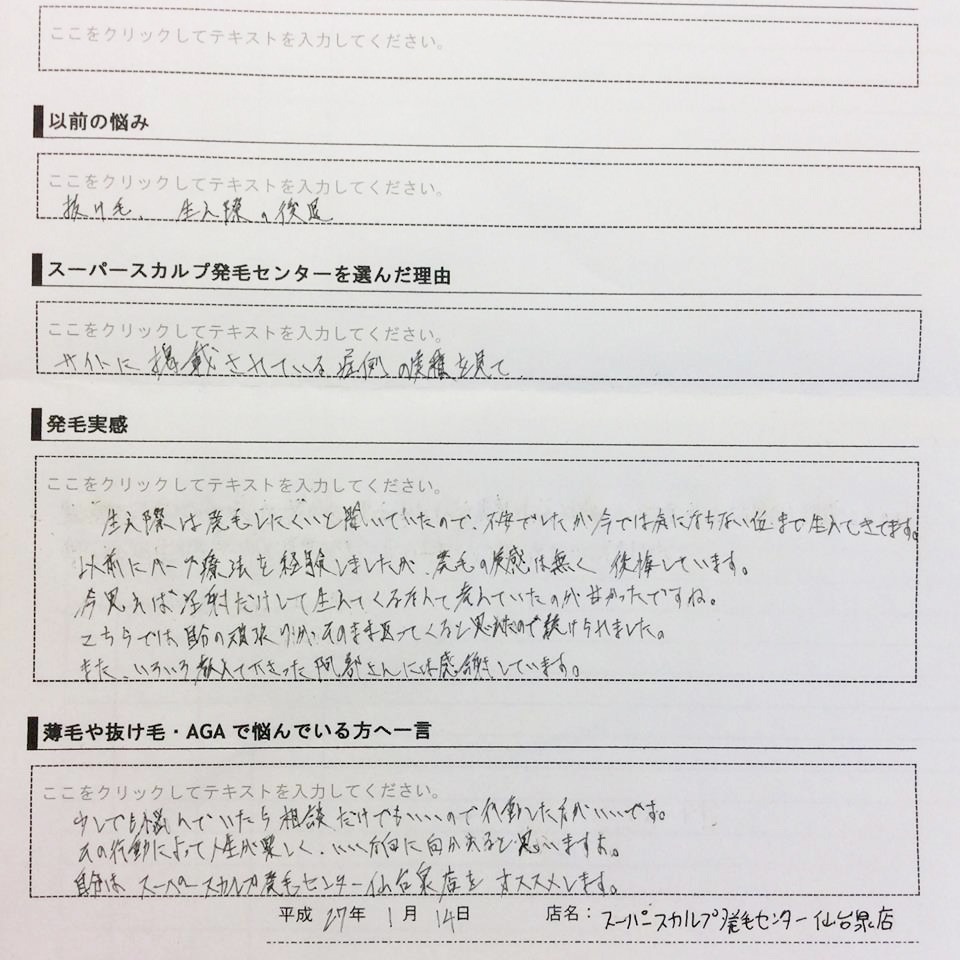 ここをクリックしてテキストを入力してください。
以前の悩み
ここをクリックしてテキストを入力してください。
抜け毛、生え際の後退
スーパースカルプ発毛センターを選んだ理由
ここをクリックしてテキストを入力してください。
サイトに掲載されている症例の実績を見て
発毛実感
ここをクリックしてテキストを入力してください。
生え際は発毛しにくいと聞いていたので、不安でしたが今では気にならない位まで生えてきてます。
以前にハーブ療法を経験しましたが、発毛の実感は無く後悔しています。
今思えば注射だけして生えてくるなんて考えていたのが甘かったですね。
こちらでは、自分の頑張りがそのまま返ってくると思えたので続けられました。
また、いろいろ教えて下さった阿部さんには感謝しています。
薄毛や抜け毛・AGAで悩んでいる方へ一言
ここをクリックしてテキストを入力してください。
少しでも悩んでいたら相談だけでもいいので行動した方がいいです。
その行動によって人生が楽しく、いい方向に向かえると思いますよ。
自分はスーパースカルプ発毛センター仙台泉店をオススメします。
平成 27年 1月 14日 店名：スーパースカルプ発毛センター仙台泉店